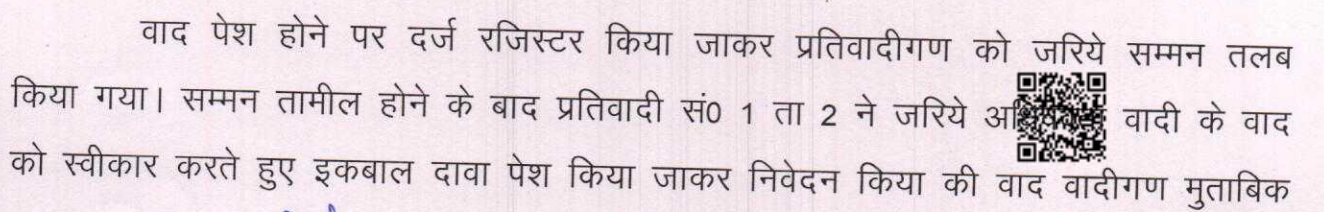 वाद पेश होने पर दर्ज रजिस्टर किया जाकर प्रतिवादीगण को जरिये सम्मन तलब
किया गया। सम्मन तामील होने के बाद प्रतिवादी सं0 1 ता 2 ने जरिये वादी के वाद
को स्वीकार करते हुए इकबाल दावा पेश किया जाकर निवेदन किया की वाद वादीगण मुताबिक